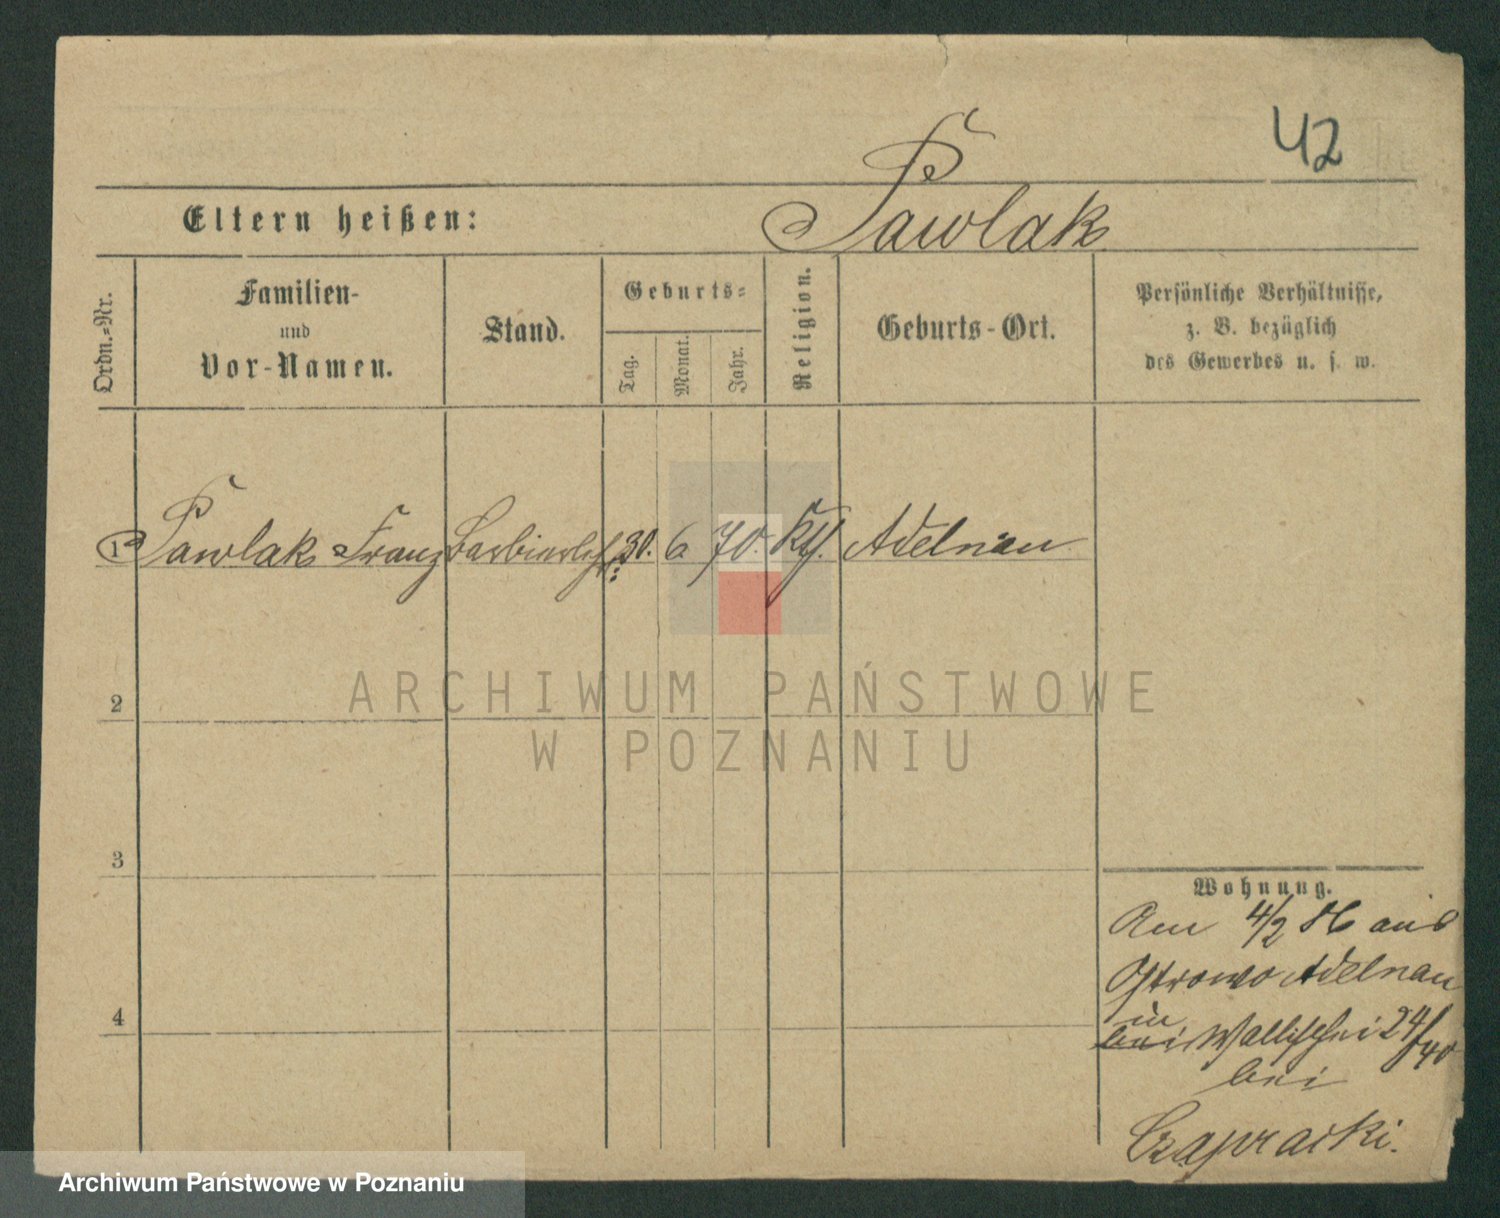 42
Eltern heißen: Pawlak
Ordn.-Nr.
Familien-
und
Vor-Namen.
Stand.
Geburts-
Tag.
Monat.
Jahr.
Religion.
Geburts-Ort.
Persönliche Verhältnisse,
z. B. bezüglich
des Gewerbes u. s. w.
1 Pawlak Franz Barbierlehrl: 30. 6 70. Kth. Adelnau
2
3
4
Wohnung.
Am 4/2 86 aus
Ostrowo Adelnau
in
bei Wallischei 24/40
bei
ARCHIWUM PAŃSTWOWE
W POZNANIU
Archiwum Państwowe w Poznaniu